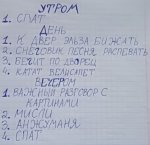 УТРОМ
1. СПАТ
ДЕНЬ
1. К ДВЕР ЭЛЬЗА БИЖАТЬ
2. СНЕГОВИК ПЕСНЯ РАСПЕВАТЬ
3. БЕГИТ ПО ДВОРЕЦ
4. КАТАТ ВЕЛИСИПЕТ
ВЕЧЕРОМ
1. ВАЖНЫЙ РАЗГОВОР С
КАРТИНАМИ
2. МИСЛИ
3. АНЖУМАНЯ
4. СПАТ